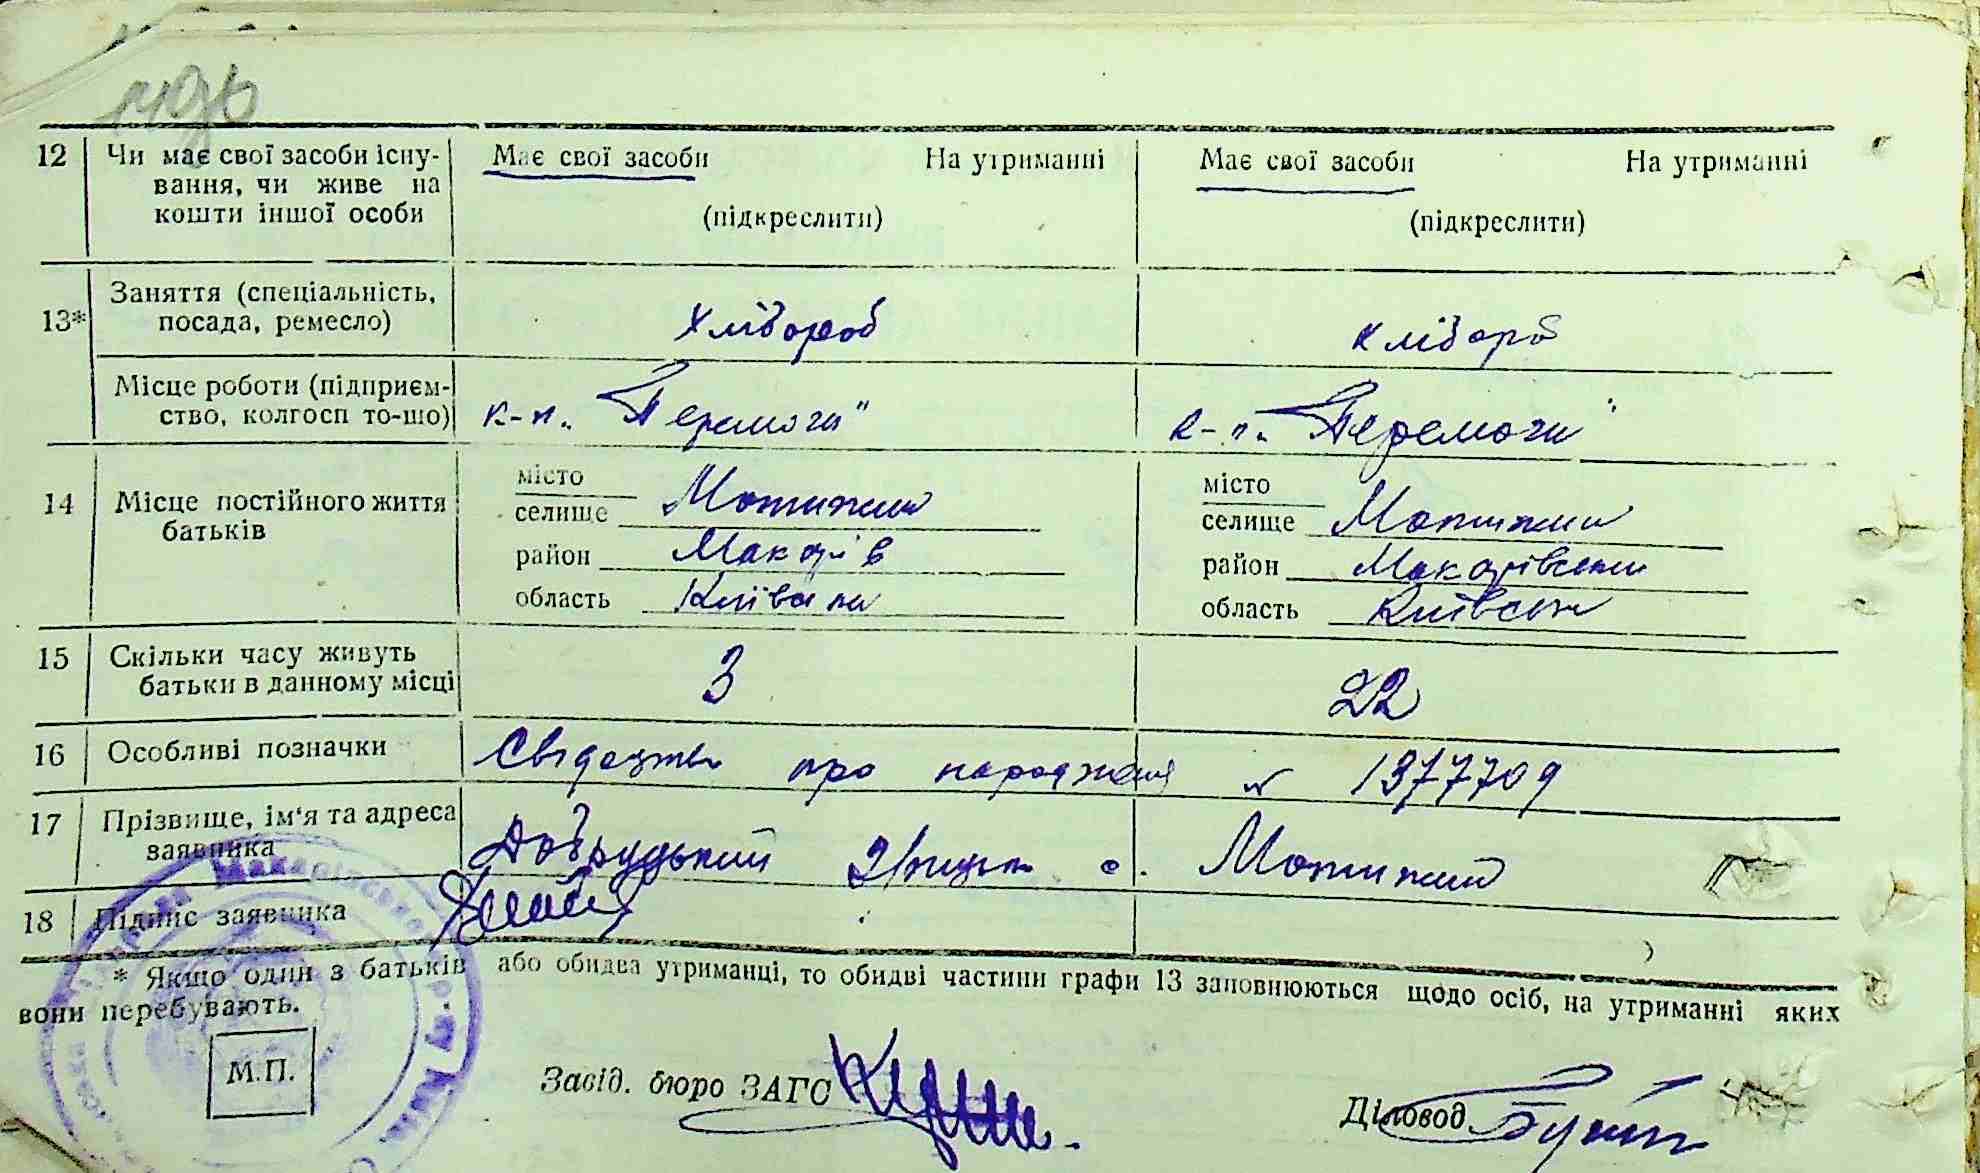 12 Чи має свої засоби існу- Має свої засоби На утриманні Має свої засоби На утриманні
вання, чи живе на
кошти іншої особи (підкреслити) (підкреслити)
13* Заняття (спеціальність,
посада, ремесло) Хлібороб хлібороб
Місце роботи (підприєм-
ство, колгосп то-що) к-п. "Перемога" к-п. "Перемога"
14 Місце постійного життя
батьків
місто місто
селище Мотижин селище Мотижин
район Макарів район Макарівський
область Київська область Київська
15 Скільки часу живуть
батьки в данному місці 3 22
16 Особливі позначки Свідоцтво про народження № 1377709
17 Прізвище, ім'я та адреса
заявника Добруцький с. Мотижин
18 Підпис заявника
* Якщо один з батьків або обидва утриманці, то обидві частини графи 13 заповнюються щодо осіб, на утриманні яких
вони перебувають.
М.П.
Завід. бюро ЗАГС
Діловод